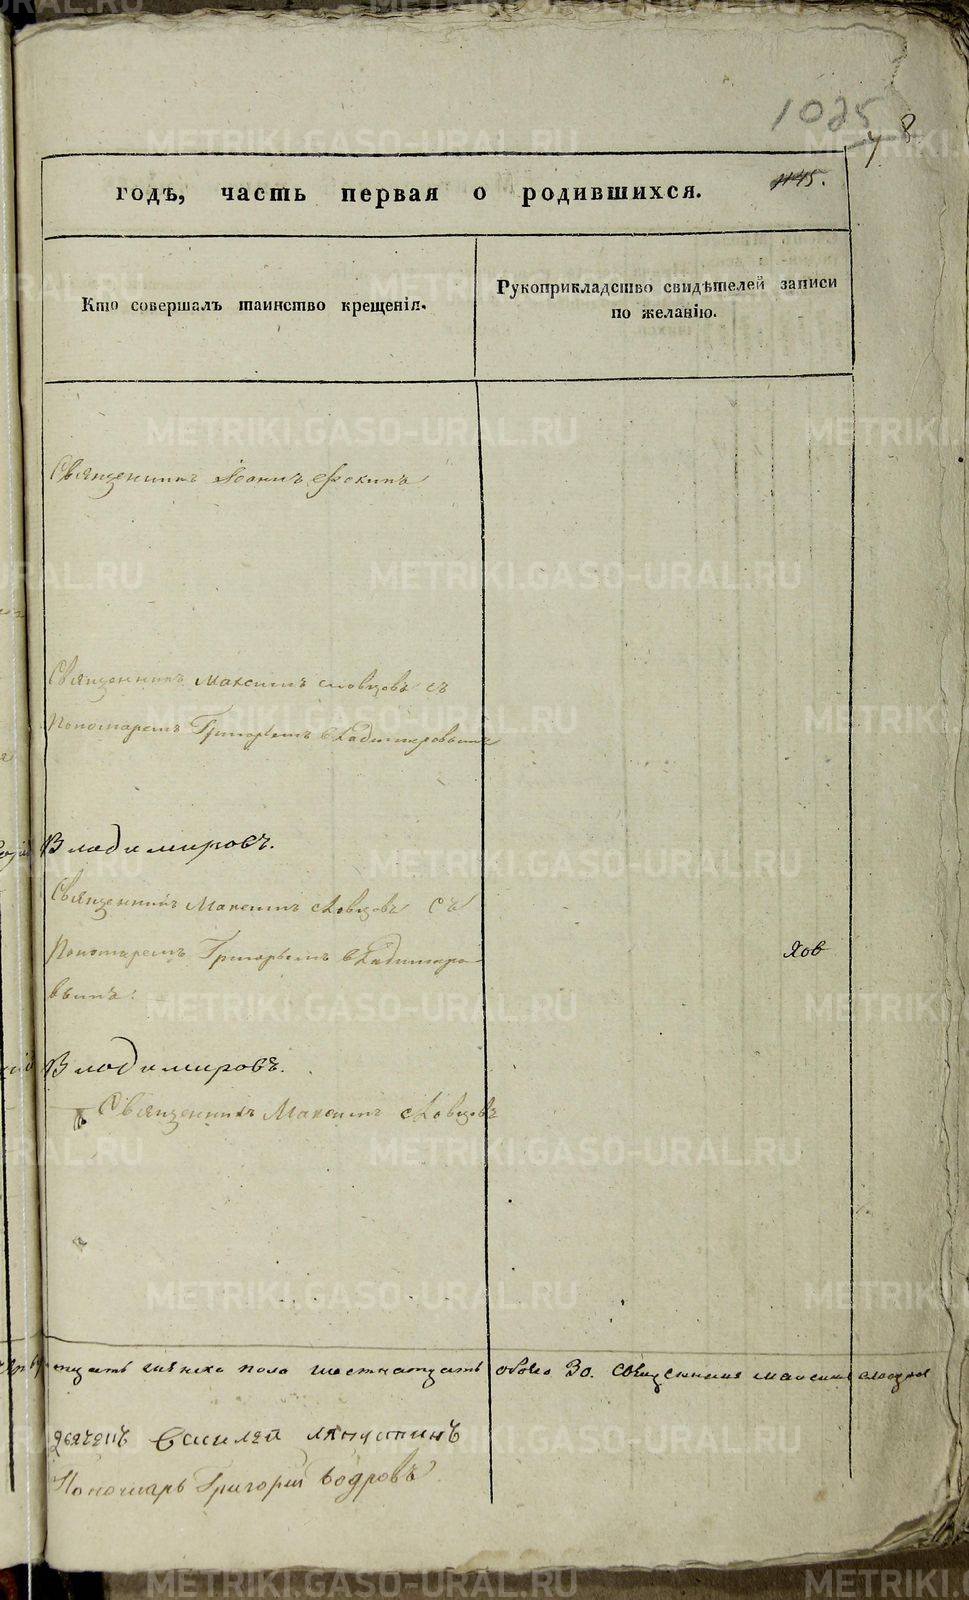 1025
8
годъ, часть первая о родившихся.
1145.
Кто совершалъ таинство крещенія.
Рукоприкладство свидѣтелей записи
по желанію.
Священникъ Іоаннъ Фокинъ
Священникъ Максимъ Словцовъ съ
Пономаремъ Григорьемъ Владимировымъ
Владимировъ.
Священникъ Максимъ Словцовъ съ
Пономаремъ Григорьемъ Владимиро
вымъ.
Яов
Владимировъ.
Священникъ Максимъ Словцовъ
женска пола шестнатцать обоего 30. Священникъ Максимъ Словцовъ
Василей Ляпустинъ
Пономарь Григорій Бодровъ
METRIKI.GASO-URAL.RU